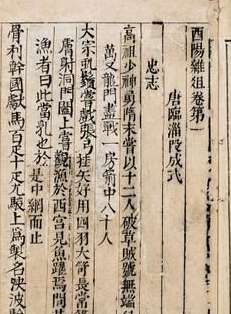 酉陽雜俎卷第一
唐臨淄段成式
忠志
高祖少神勇隋末嘗以十二人破草賊號無端
萬又龍門盡戰一房箭中八十人
太宗虬鬚嘗戲張弓挂矢好用四羽大笴長常
膚射洞門闔上嘗觀漁於西宮見魚躍焉問其
漁者曰此當乳也於是中網而止
骨利幹國獻馬百疋十疋尤駿上爲製名決波騟